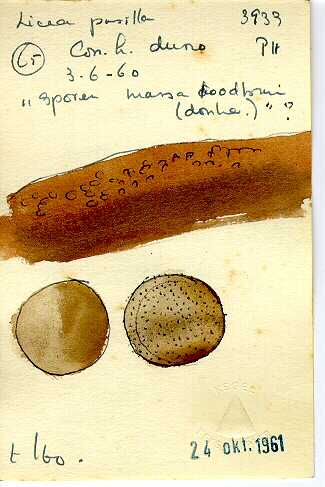 Licea pusilla 3933
L5 Con. h. duno PH
3-6-60
"sporen massa roodbruin
(donker)" ?
t 160.
24 okt. 1961